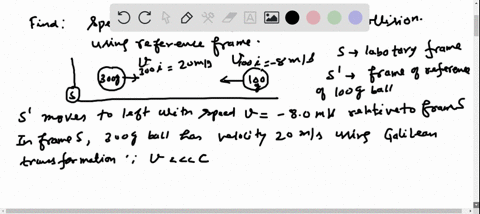 Find: Spe llision.
using reference frame.
V300i = 20m/s V100i = -8 m/s S → labotory frame
300g 100g S' → frame of reference
S of 100g ball
S' moves to left with speed V = -8.0 m/s relative to frame S
In frame S, 300g ball has velocity 20 m/s using Galilean
transformation ∵ V <<< C